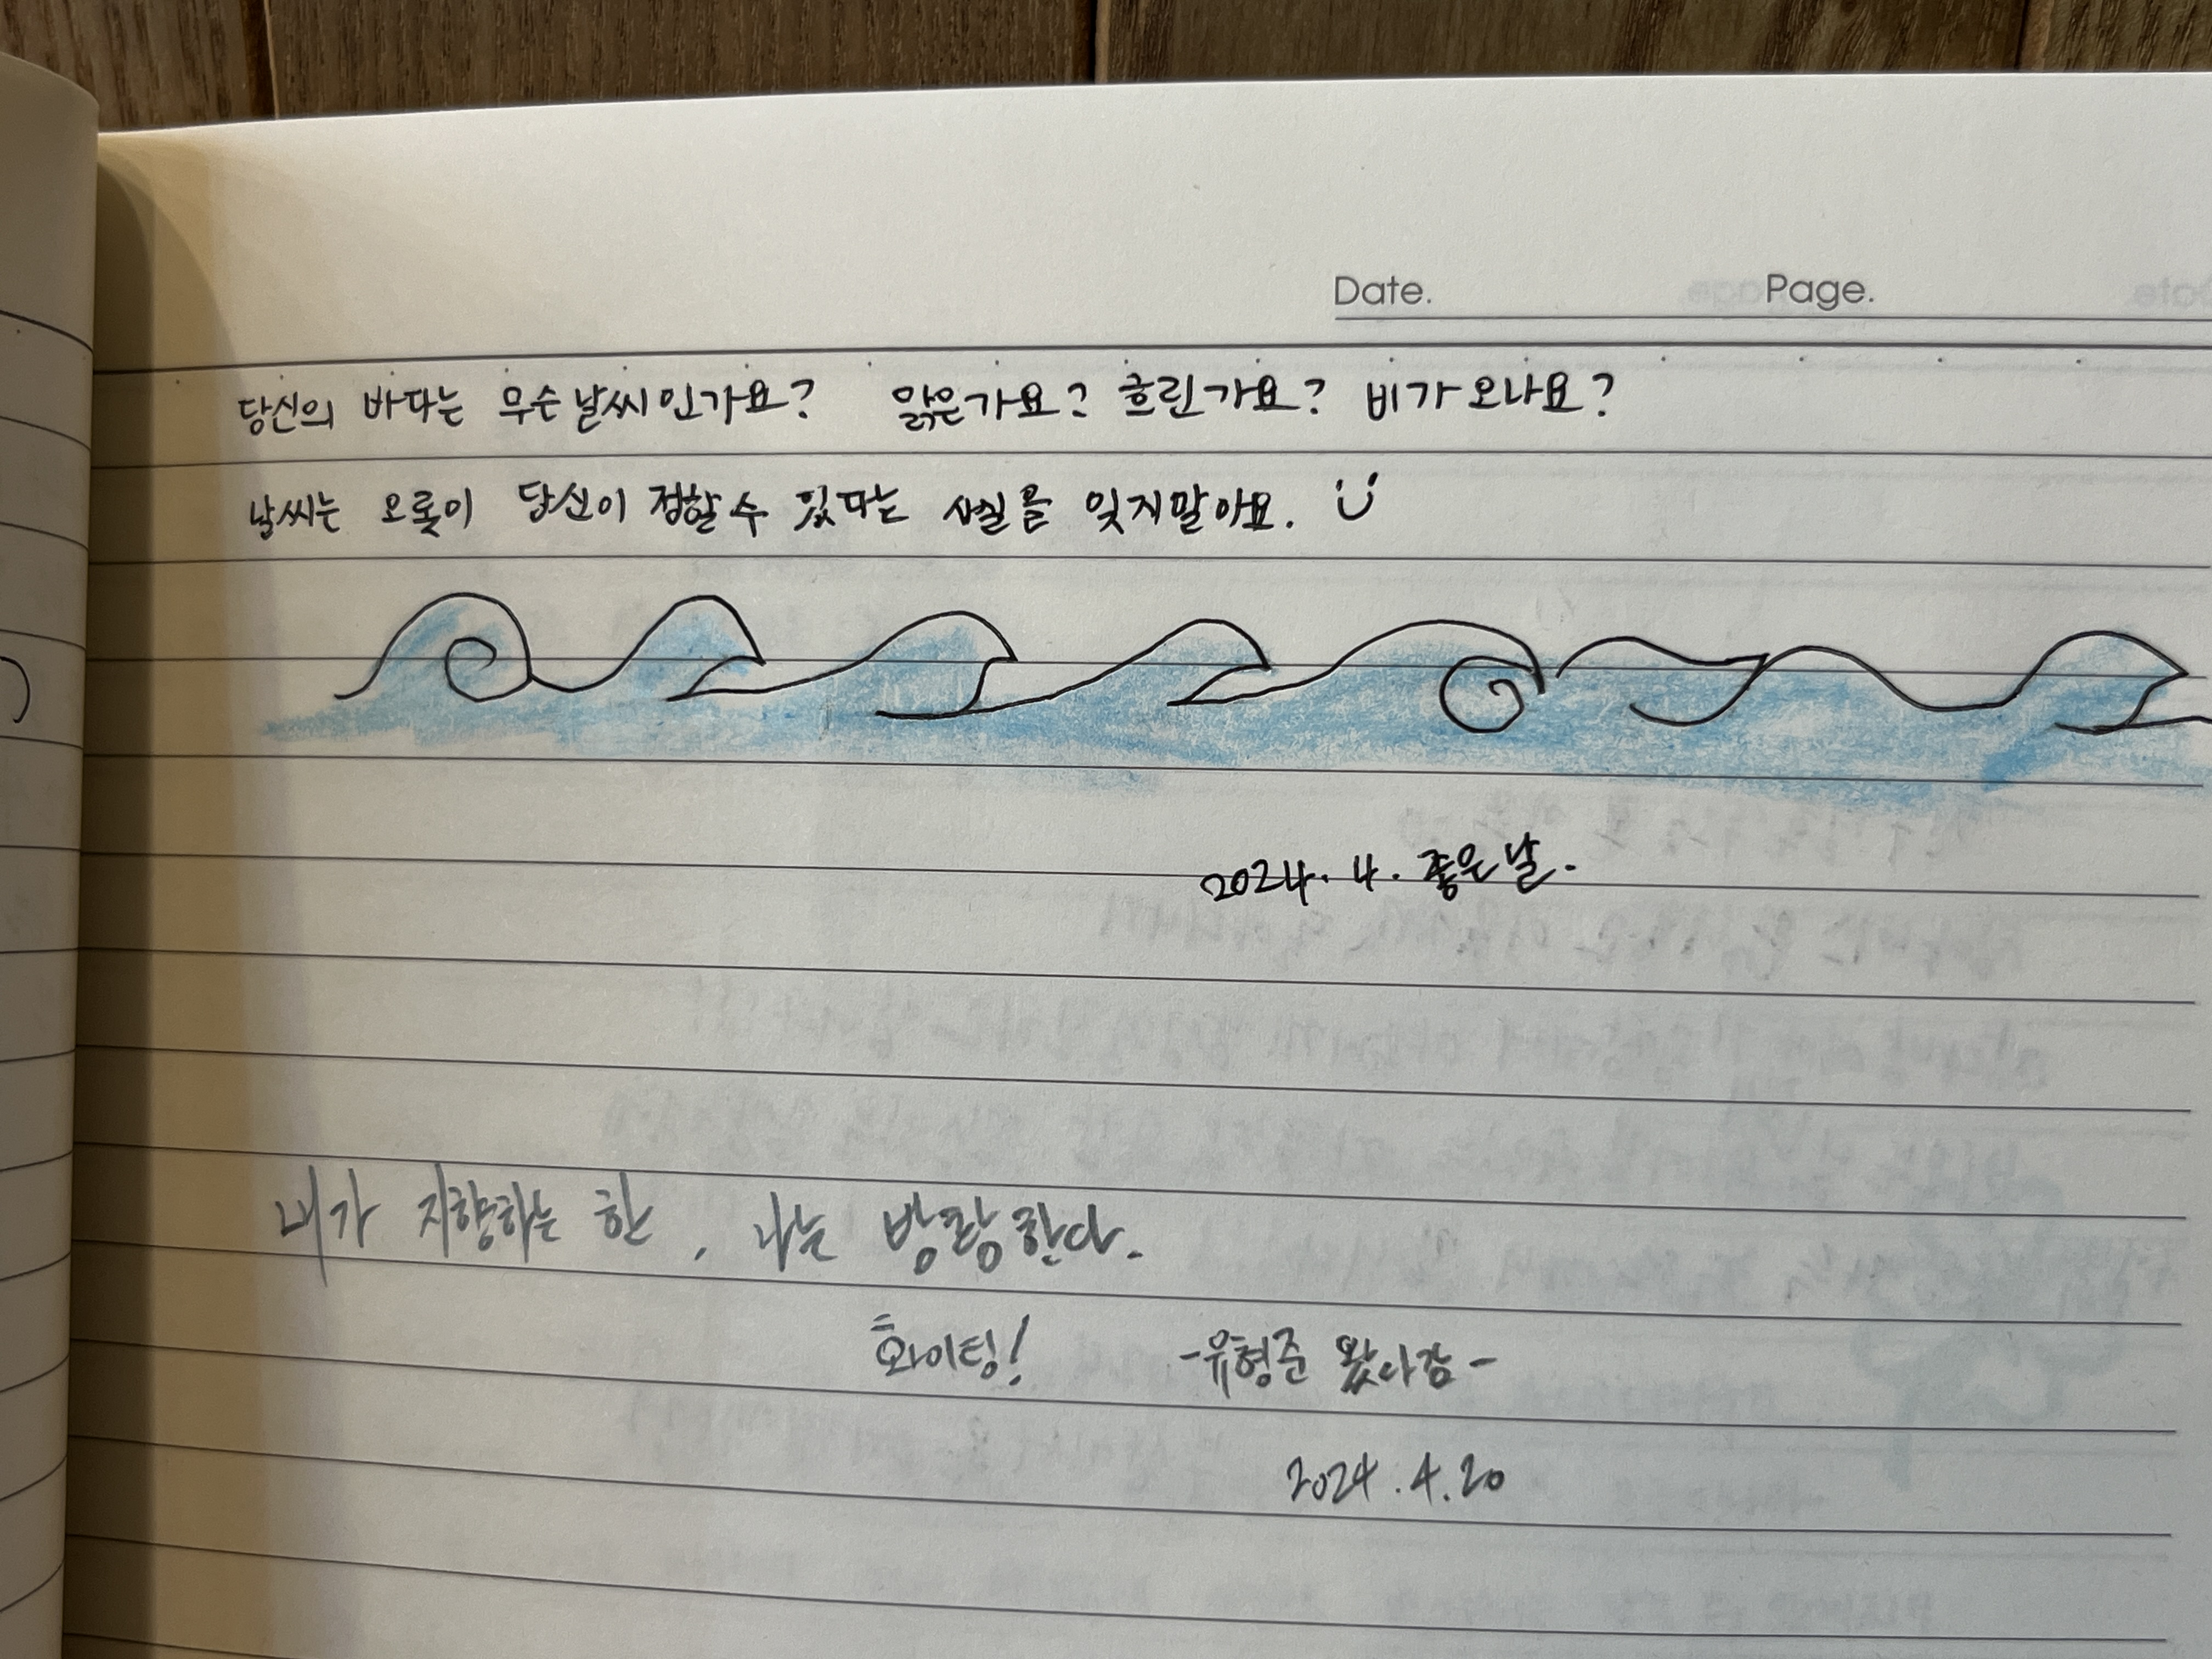 Date. Page.
당신의 바다는 무슨 날씨인가요? 맑은가요? 흐린가요? 비가 오나요?
날씨는 오롯이 당신이 정할 수 있다는 사실을 잊지말아요. :)
2024. 4. 좋은날.
내가 지향하는 한, 나는 방랑한다.
화이팅! -유형준 왔다감-
2024.4.20